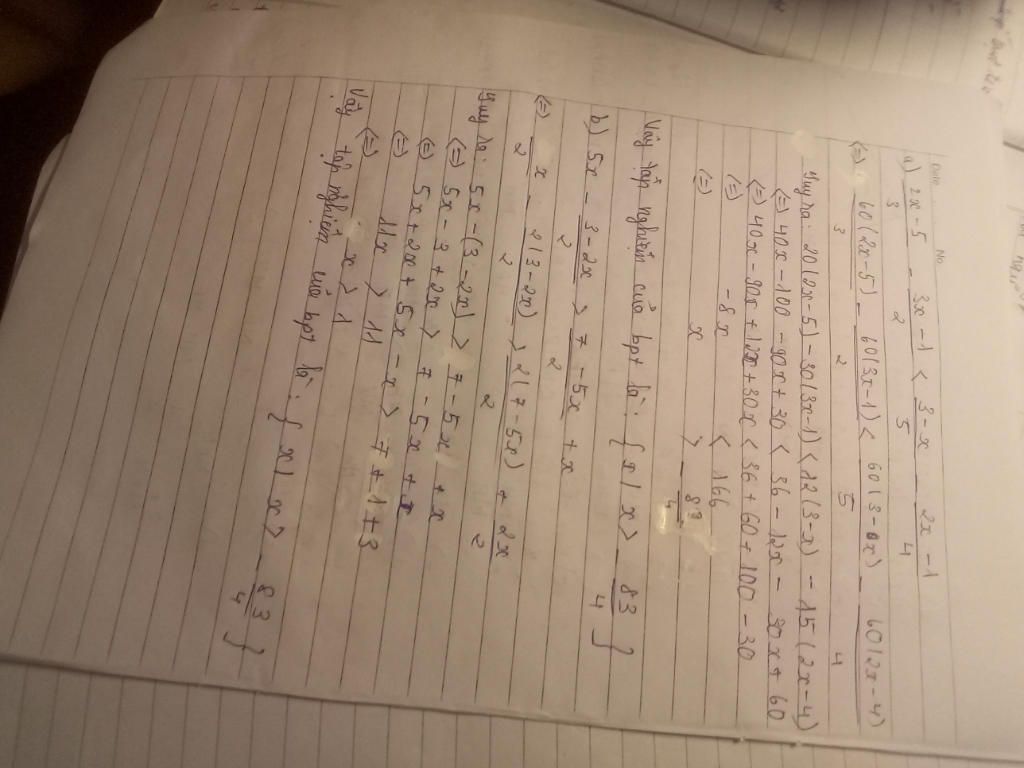 Date No
a) 2x-5/3 - 3x-1/2 < 3-x/5 - 2x-1/4
(=) 60(2x-5)/3 - 60(3x-1)/2 < 60(3-x)/5 - 60(2x-4)/4
Suy ra: 20(2x-5) - 30(3x-1) < 12(3-x) - 15(2x-4)
(=) 40x - 100 - 90x + 30 < 36 - 12x - 30x + 60
(=) 40x - 90x + 12x + 30x < 36 + 60 + 100 - 30
(=) -8x < 166
(=) x > -83/4
Vậy tập nghiệm của bpt là: { x | x > -83/4 }
b) 5x - 3-2x/2 > 7-5x/2 + x
(=) x/2 - 2(3-2x)/2 > 2(7-5x)/2 + 2x/2
Suy ra: 5x - (3-2x) > 7-5x + x
(=) 5x - 3 + 2x > 7 - 5x + x
(=) 5x + 2x + 5x - x > 7 + 1 + 3
(=) 11x > 11
(=) x > 1
Vậy tập nghiệm của bpt là: { x | x > -83/4 }